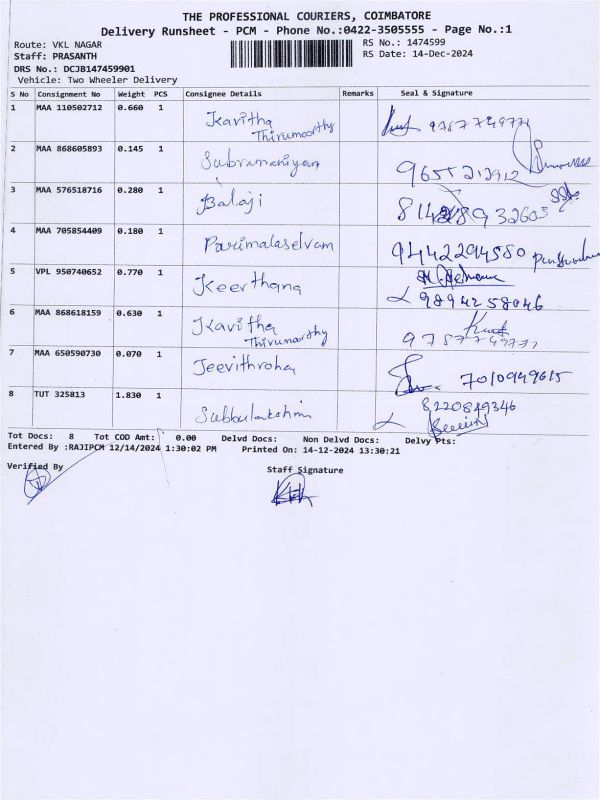 THE PROFESSIONAL COURIERS, COIMBATORE
Delivery Runsheet - PCM - Phone No.:0422-3505555 - Page No.:1
Route: VKL NAGAR
RS No.: 1474599
Staff: PRASANTH
RS Date: 14-Dec-2024
DRS No.: DCJB147459901
Vehicle: Two Wheeler Delivery
S No Consignment No Weight PCS Consignee Details Remarks Seal & Signature
1 MAA 110502712 0.660 1 Kavitha
Thirumoorthy
2 MAA 868605893 0.145 1 Subramaniyan
9655212912
3 MAA 576518716 0.280 1 Balaji
4 MAA 705854409 0.180 1 Parimalaselvam 9442294580
5 VPL 950740652 0.770 1 Keerthana
9894258046
6 MAA 868618159 0.630 1 Kavitha
Thirumoorthy 9787749771
7 MAA 650590730 0.070 1 7010949615
8 TUT 325813 1.830 1 Subbulakshmi 8220849346
Tot Docs: 8 Tot COD Amt: 0.00 Delvd Docs: Non Delvd Docs: Delvy Pts:
Entered By :RAJIPCM 12/14/2024 1:30:02 PM Printed On: 14-12-2024 13:30:21
Verified By
Staff Signature